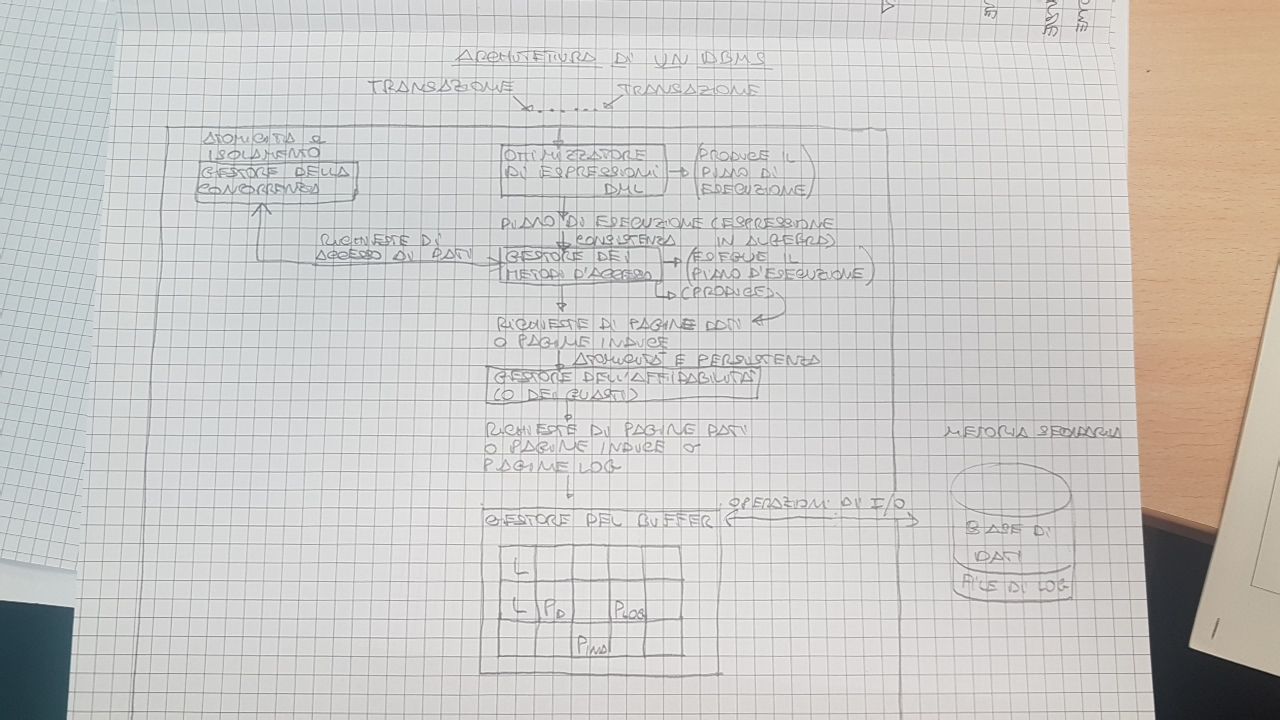 ARCHITETTURA DI UN DBMS
TRANSAZIONE
TRANSAZIONE
ATOMICITÀ e
ISOLAMENTO
GESTORE DELLA
CONCORRENZA
OTTIMIZZATORE
DI ESPRESSIONI
DML
(PRODUCE IL
PIANO DI
ESECUZIONE)
PIANO DI ESECUZIONE (ESPRESSIONE
IN ALGEBRA)
CONSISTENZA
RICHIESTE DI
ACCESSO AI DATI
GESTORE DEI
METODI D'ACCESSO
(ESEGUE IL
PIANO D'ESECUZIONE)
(PRODUCE)
RICHIESTE DI PAGINE DATI
O PAGINE INDICE
ATOMICITÀ E PERSISTENZA
GESTORE DELL'AFFIDABILITÀ
(O DEI GUASTI)
RICHIESTE DI PAGINE DATI
O PAGINE INDICE o
PAGINE LOG
OPERAZIONI DI I/O
GESTORE DEL BUFFER
L
L PD PLOG
PIND
MEMORIA SECONDARIA
BASE DI
DATI
FILE DI LOG